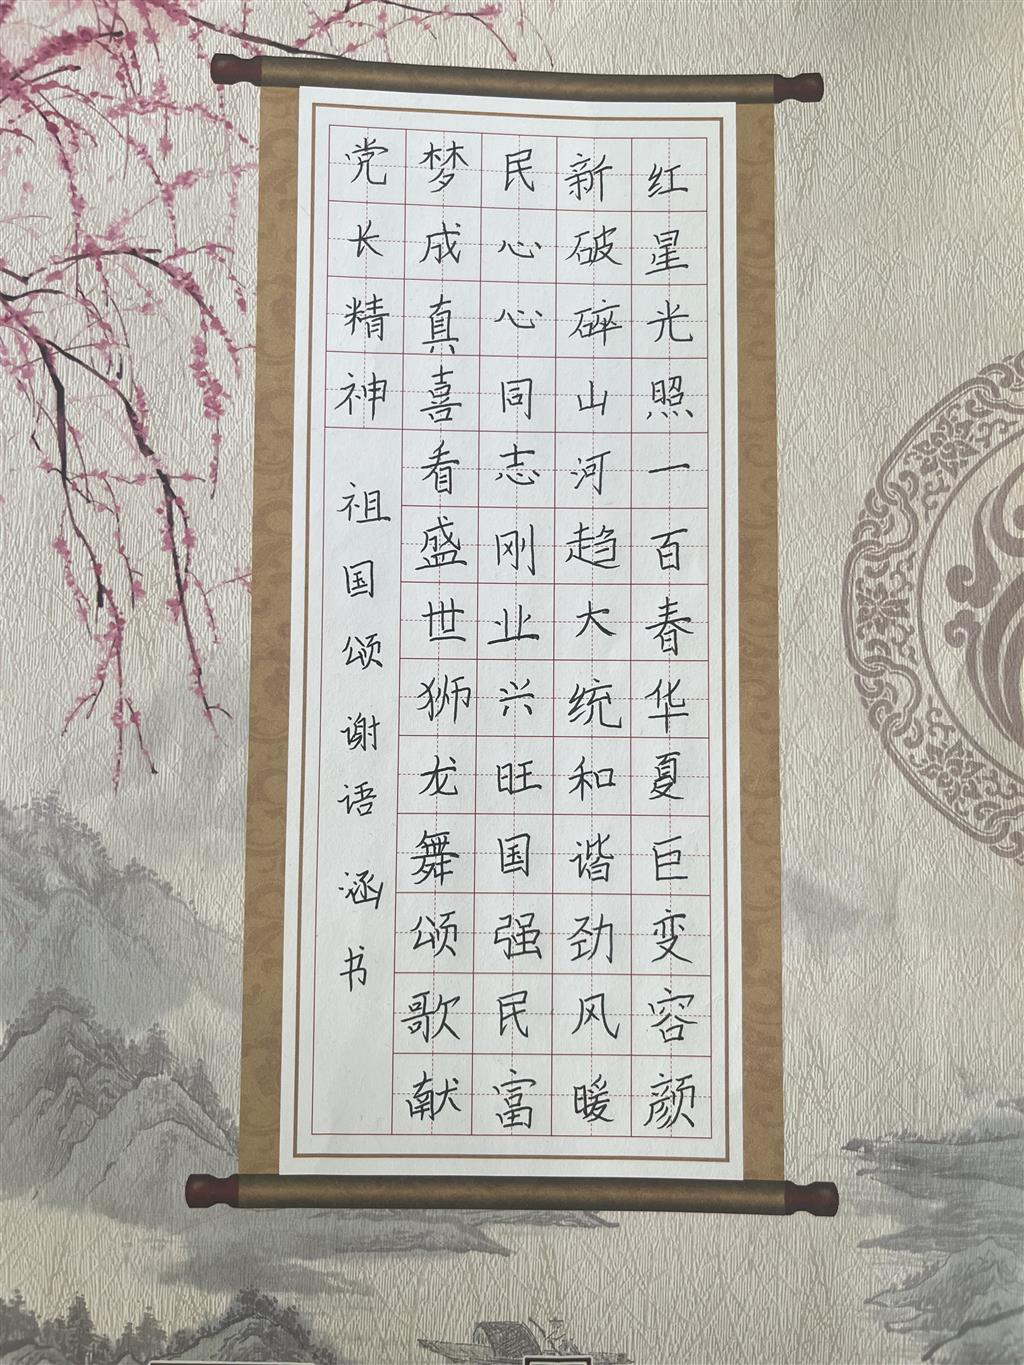 红星光照一百春华夏巨变容颜
新破碎山河趋大统和谐劲风暖
民心心同志刚业兴旺国强民富
梦成真喜看盛世狮龙舞颂歌献
党长精神
祖国颂谢语涵书